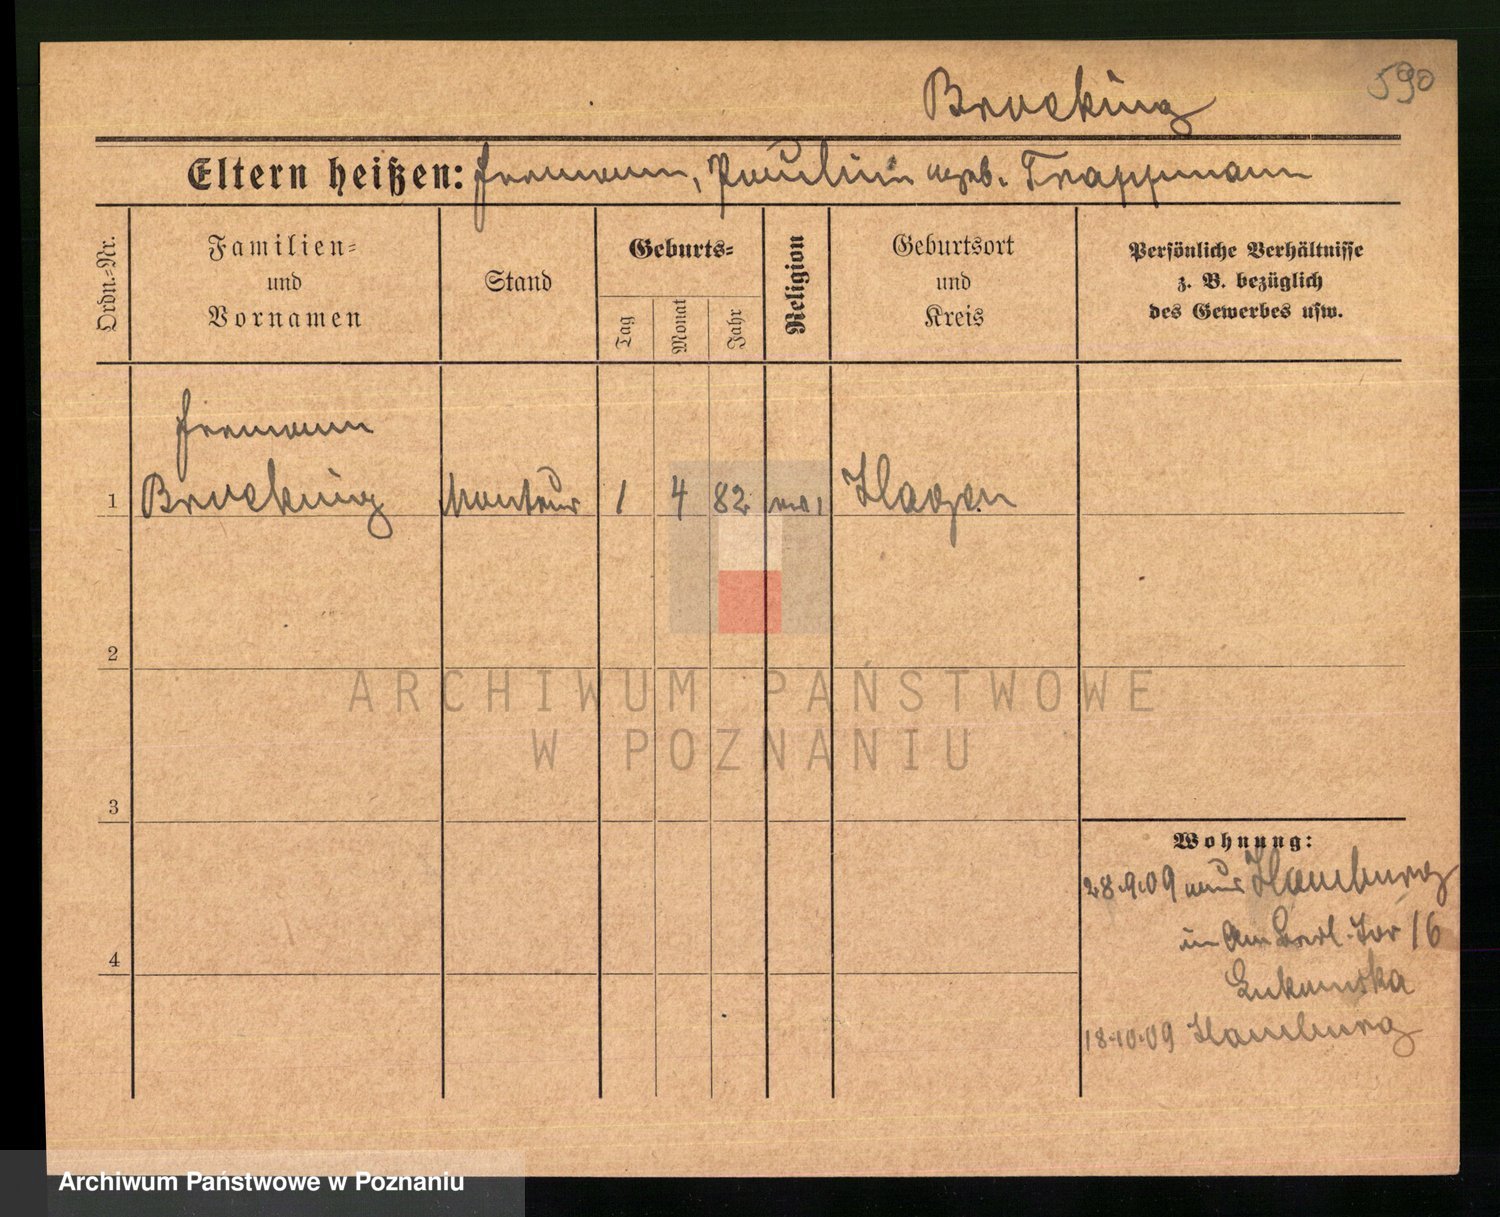 590
Brocking
Eltern heißen: Hermann, Pauline geb. Trappmann
Ordn.-Nr.
Familien-
und
Vornamen
Stand
Geburts-
Tag
Monat
Jahr
Religion
Geburtsort
und
Kreis
Persönliche Verhältnisse
z. B. bezüglich
des Gewerbes usw.
Hermann
1 Brocking Monteur 1 4 82 Hagen
2
ARCHIWUM PAŃSTWOWE
W POZNANIU
3
Wohnung:
28.9.09 aus Hamburg
in Am Berl. Tor 16
4
18.10.09 Hamburg
Archiwum Państwowe w Poznaniu